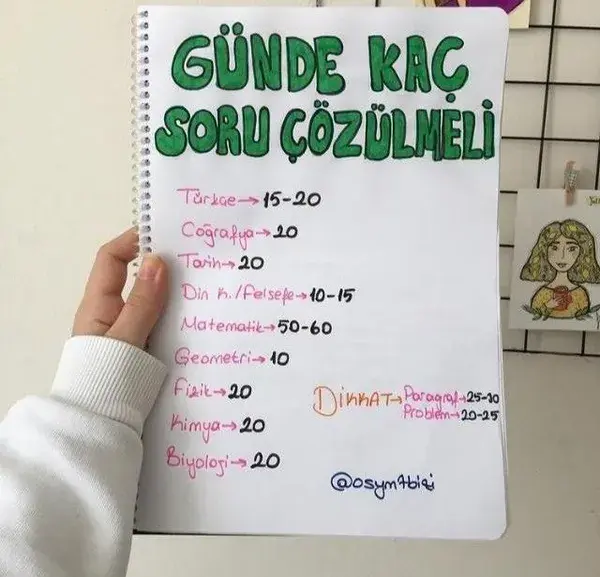 GÜNDE KAÇ
SORU ÇÖZÜLMELİ
Türkçe→15-20
Coğrafya→20
Tarih→20
Din K./Felsefe→10-15
Matematik→50-60
Geometri→10
Fizik→20
Kimya→20
Biyoloji→20
DİKKAT→Paragraf→25-30
Problem→20-25